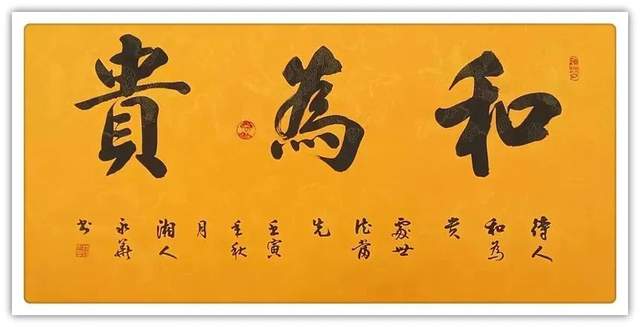 和為貴
待人
和為
貴
處世
德當
先
壬寅
年秋
月
湘人
永華
书